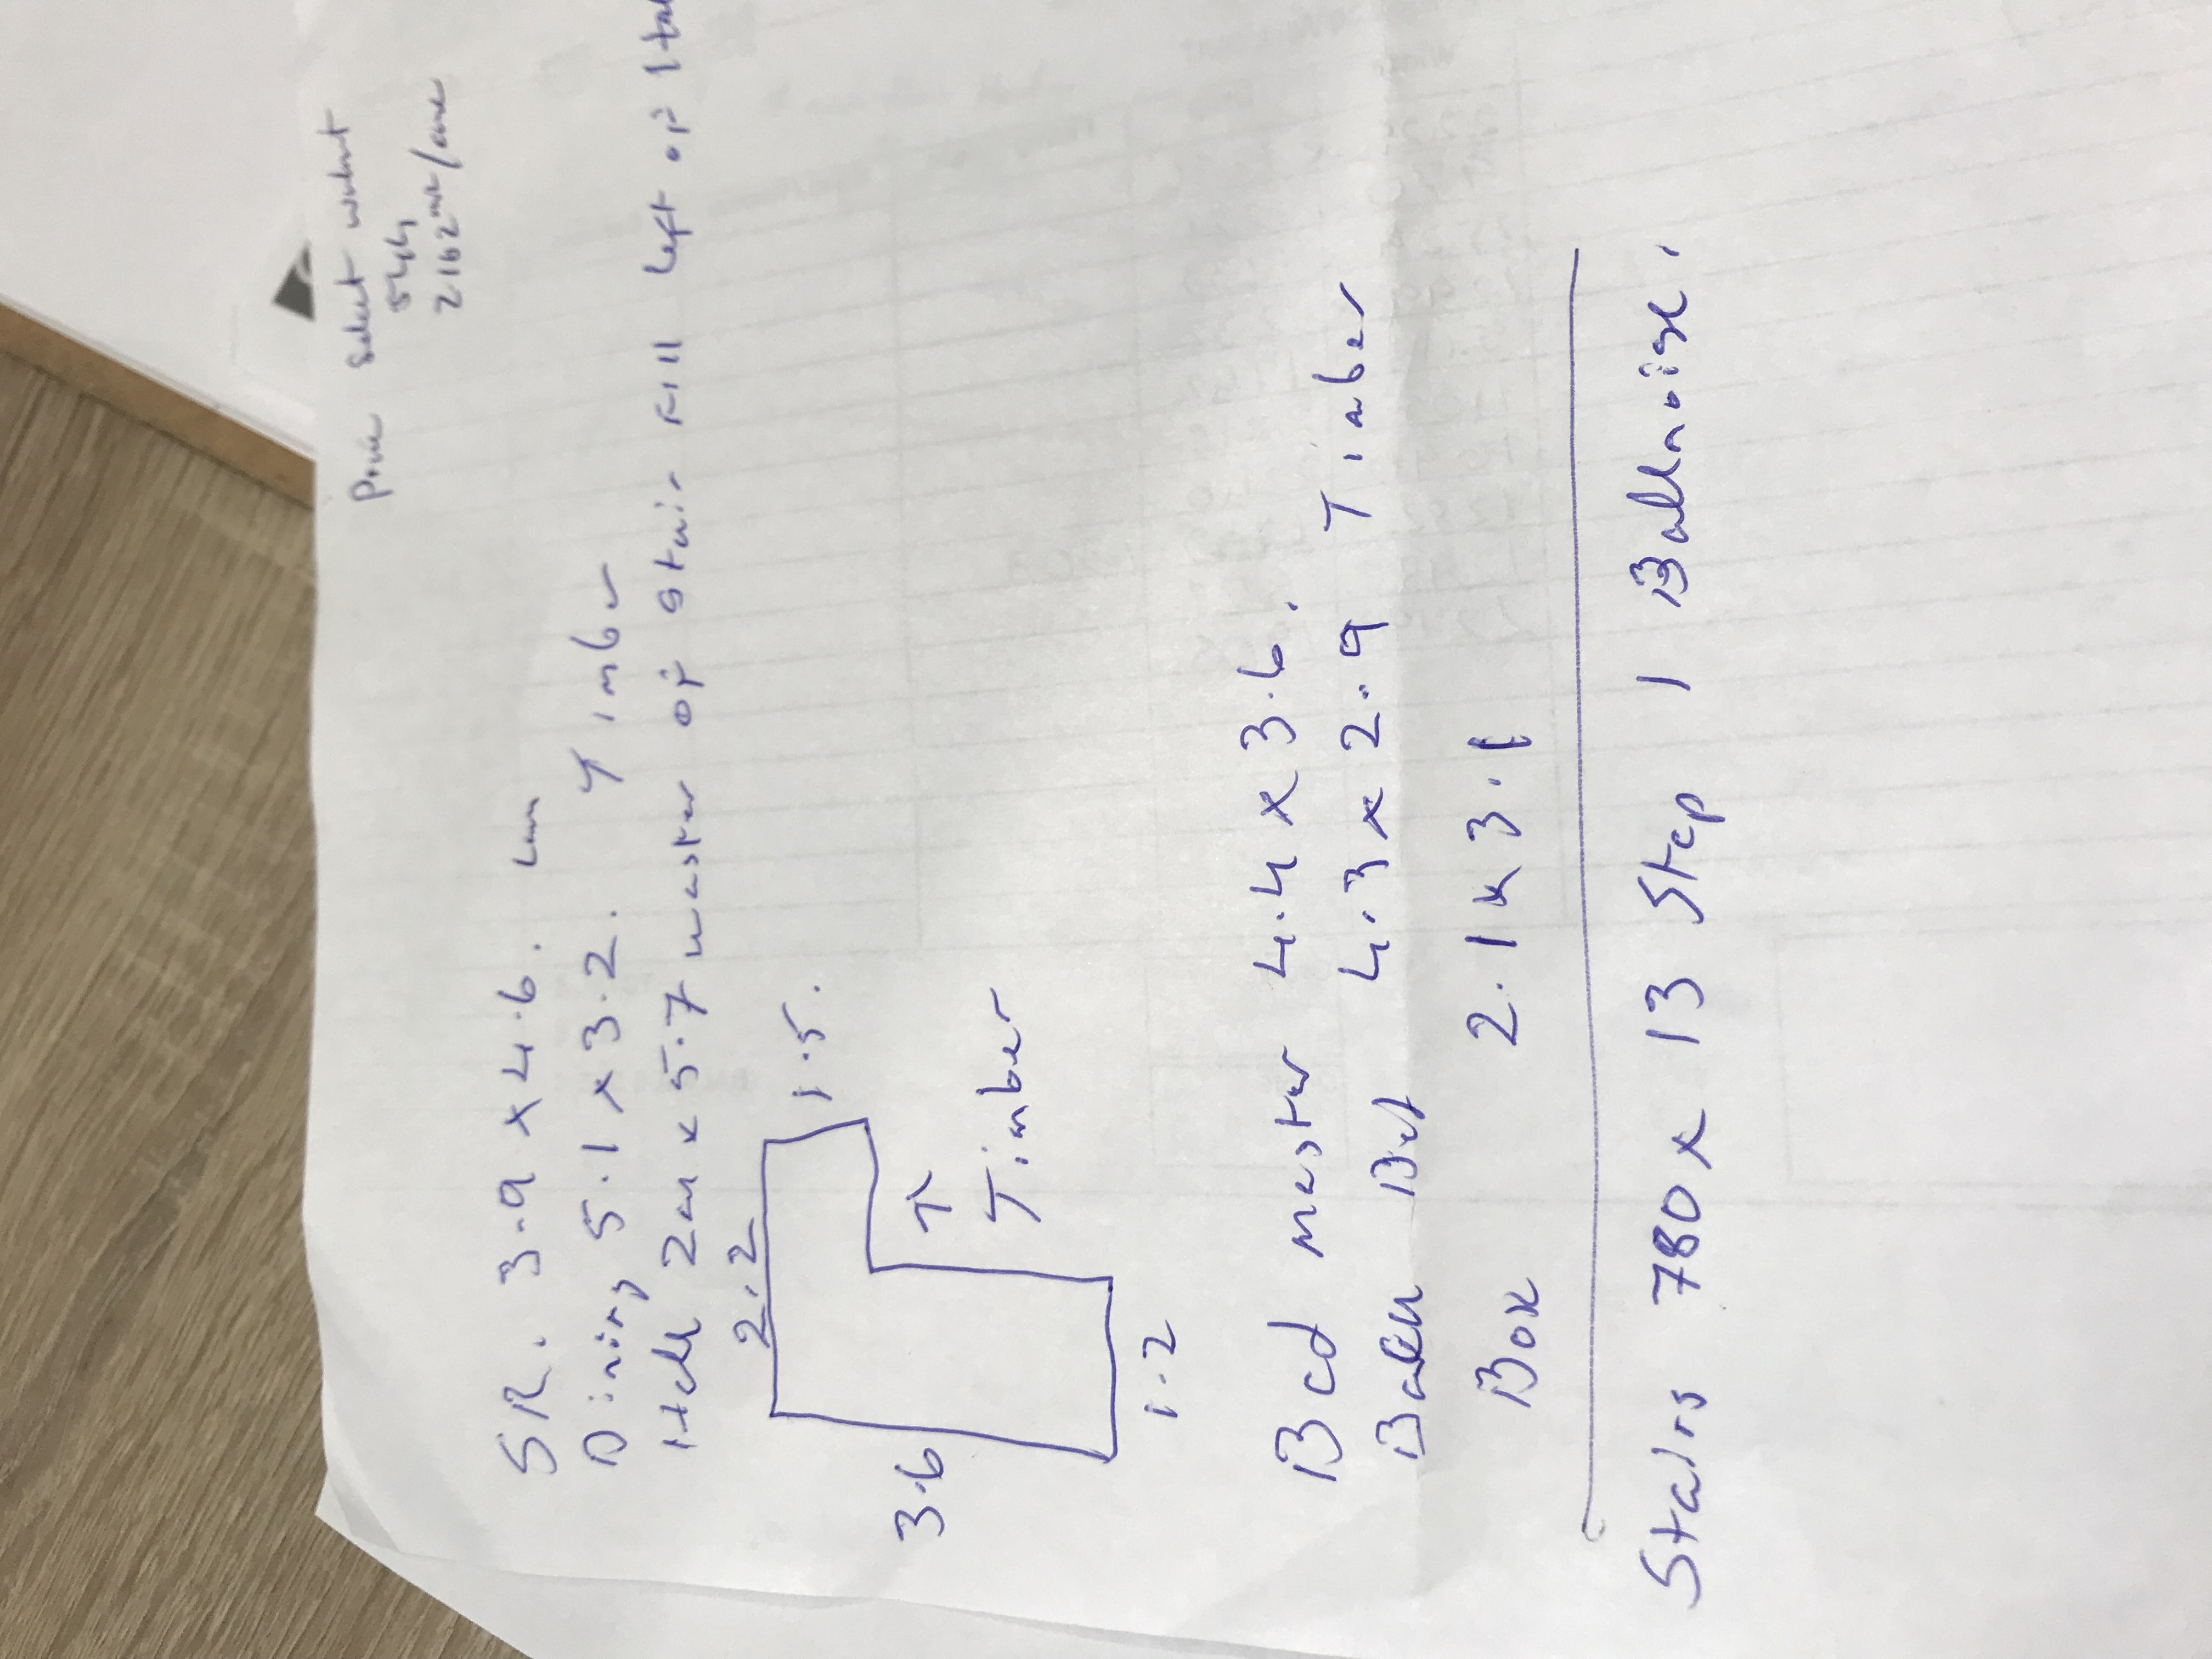 Select walnut
544
2.162 m2/
SR. 3.9 x 4.6. Lam
Dining 5.1 x 3.2. Timber
Hall 2m x 5.7 waster of of stair Fill left of
2.2
1.5.
3.6
Timber
1.2
Bed master 4.4 x 3.6.
4.3 x 2.9 Timber
Bed
Box 2.1 x 3.1
Stairs 780 x 13 Step 1 Bullnoise.